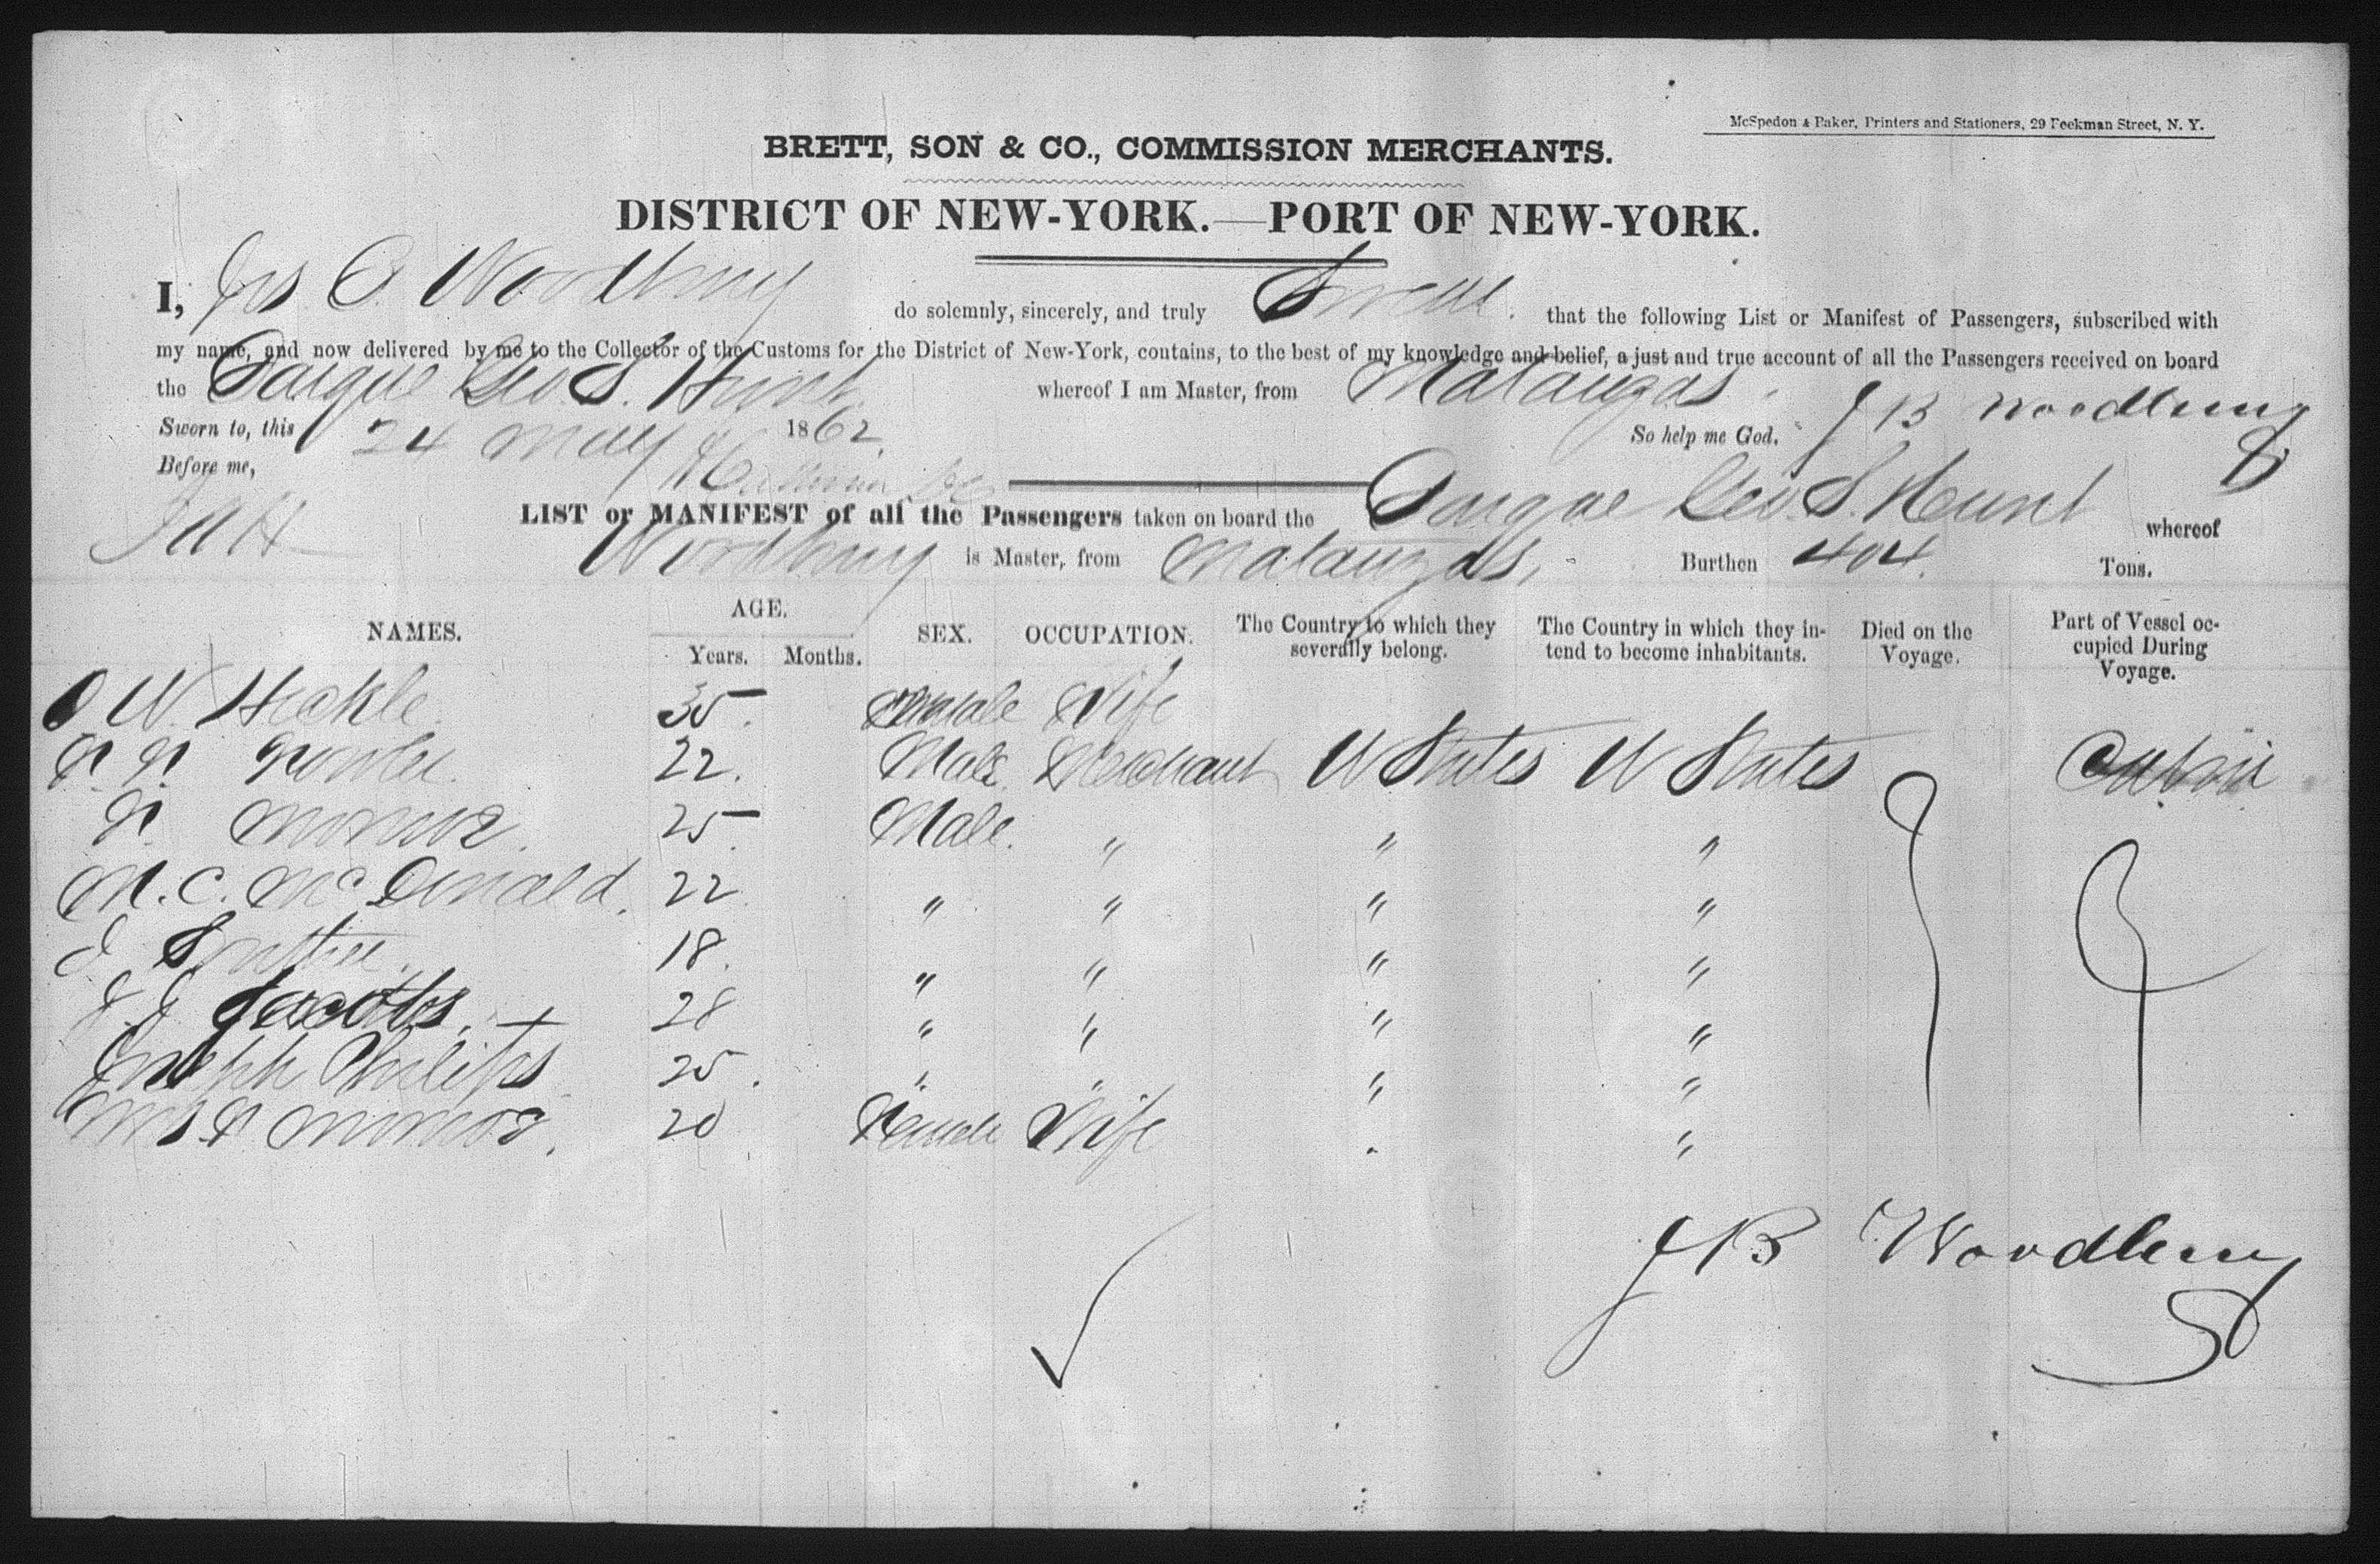 McSpedon & Baker, Printers and Stationers, 29 Beekman Street, N. Y.
BRETT, SON & CO., COMMISSION MERCHANTS.
DISTRICT OF NEW-YORK.—PORT OF NEW-YORK.
I, Jas B Woodbury do solemnly, sincerely, and truly Swear that the following List or Manifest of Passengers, subscribed with
my name, and now delivered by me to the Collector of the Customs for the District of New-York, contains, to the best of my knowledge and belief, a just and true account of all the Passengers received on board
the Barque Geo. S. Hunt whereof I am Master, from Matanzas.
Sworn to, this 24 May 1862 So help me God. J B Woodbury
Before me,
LIST or MANIFEST of all the Passengers taken on board the Barque Geo. S. Hunt whereof
Woodbury is Master, from Matanzas, Burthen 404 Tons.
NAMES. AGE. Years. Months. SEX. OCCUPATION. The Country to which they severally belong. The Country in which they intend to become inhabitants. Died on the Voyage. Part of Vessel occupied During Voyage.
W. Heakle. 35. Female Wife
22. Male Merchant U States U States Cabin
25. Male. " " "
M. C. McDonald. 22 " " " "
18. " " " "
J. J. Jacobs. 28 " " " "
Joseph Philips 25. " " " "
Mrs 20 Female Wife " "
J B Woodbury